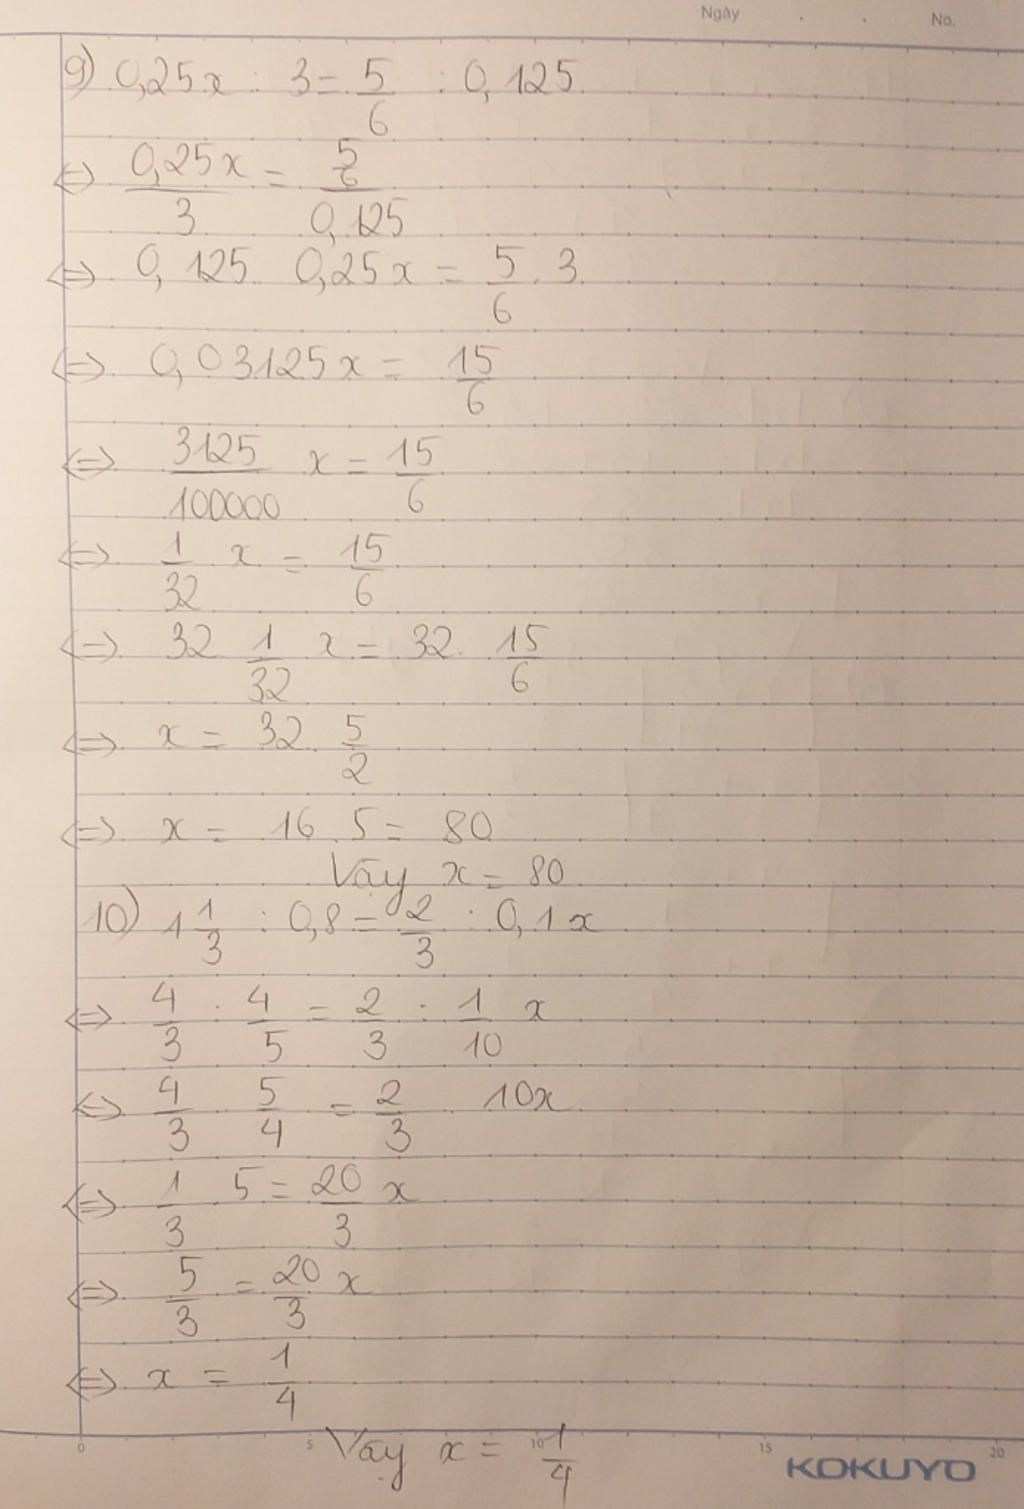 Ngày . . No.
9) 0,25x : 3 = 5/6 : 0,125
⇔ 0,25x/3 = (5/6)/0,125
⇔ 0,125 . 0,25x = 5/6 . 3
⇔ 0,03125x = 15/6
⇔ 3125/100000 x = 15/6
⇔ 1/32 x = 15/6
⇔ 32 1/32 x = 32 . 15/6
⇔ x = 32 . 5/2
⇔ x = 16 . 5 = 80
Vậy x = 80
10) 1 1/3 : 0,8 = 2/3 : 0,1x
⇔ 4/3 : 4/5 = 2/3 : 1/10 x
⇔ 4/3 . 5/4 = 2/3 . 10x
⇔ 1/3 5 = 20/3 x
⇔ 5/3 = 20/3 x
⇔ x = 1/4
Vậy x = 1/4
0 5 10 15 20
KOKUYO